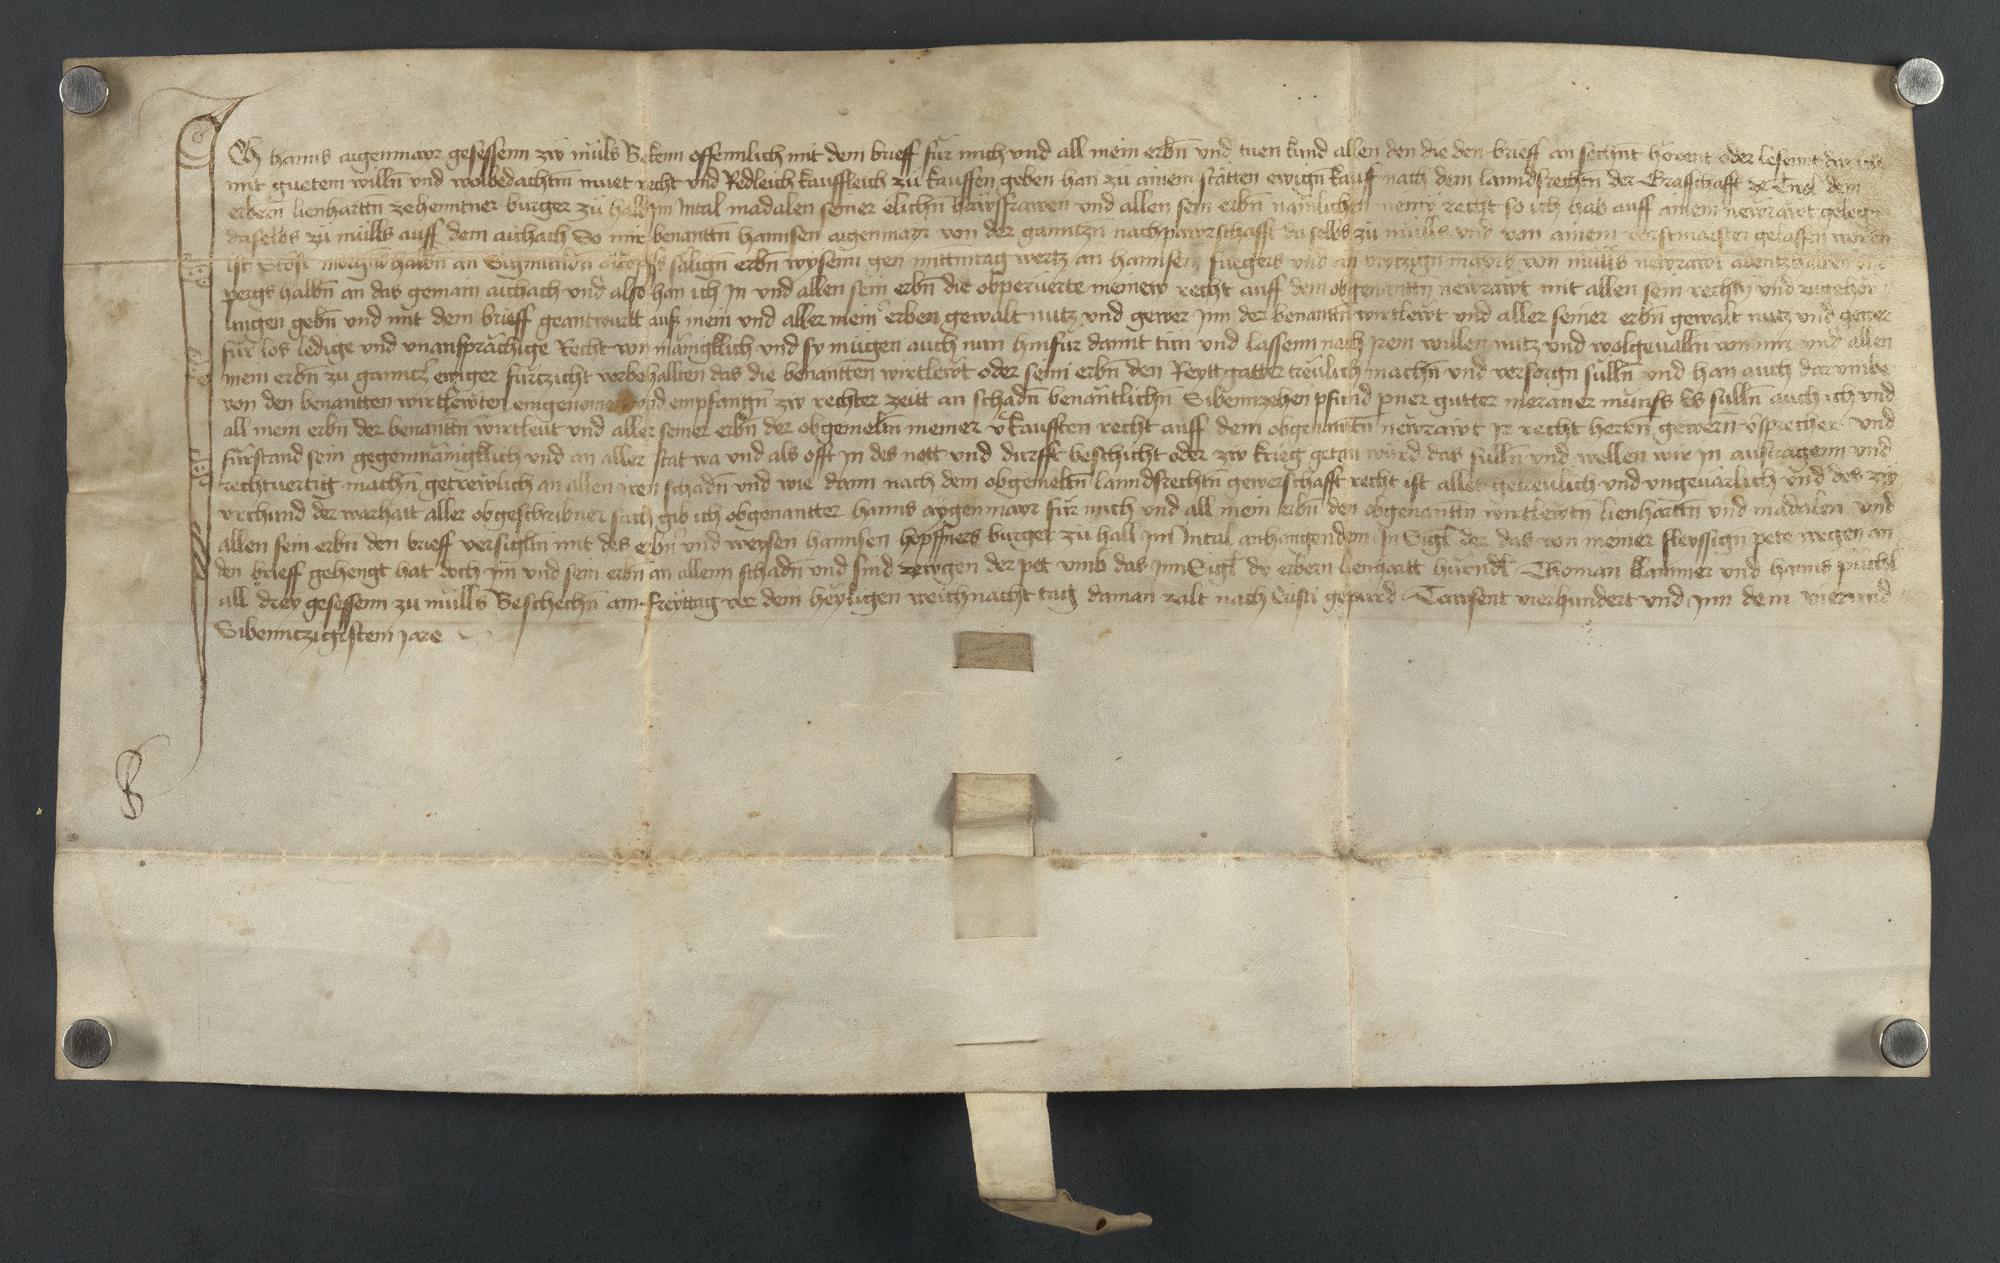 Ich hanns aigenmayr gesessenn zw müls Bekenn offennlich mit dem brieff für mich und all mein erbn̄ und tuen kund allen den die den brieff an sechnt hörent oder lesennt das ich
mit guetem willn̄ und wolbedachtm̄ muet recht und Redleich kauffleich zü kauffen geben han zu ainem stätten ewign̄ kauff nach dem lanndsrechtn̄ der Grafschafft ze Tirol dem
erbern lienharttn̄ zehenntner burger zü hall Im Intal madalen seiner elichn̄ hawsfrawen und allen sein erbn̄ nämlichen meinw recht so ich hab auff ainem newrawt gelegn̄
daselbs zü mülls auff dem aichach So mir benanttn̄ hannsen aigenmayr von der ganntzn̄ nachpawrschafft daselbs zü mülls und von ainem vorstmaister gelassen worden
ist Stost halbn̄ an Sigmundn̄ sälign̄ erbn̄ wysenn gen mittmtag wertz an hannsen fuegers und an mayrs von mülls newrawt abentzhalben
pergs halbn̄ an das gemain aichach und also han ich In und allen sein erbn̄ die obperüerte meinew recht auff dem obgenanttn̄ newrawt mit allen sein rechtn̄ und zugehör
ungen gebn̄ und mit dem brieff geantwurtt auß mein und aller mein' erben gewalt nutz und gewer Inn der benanttn̄ wirtlewt und aller seiner erbn̄ gewalt nutz und gewer
für los ledige und unansprächige Recht von mänigklich und sy mügen auch nun hinfur damit tün und lassenn nach Irem willen nutz und wolgevalln̄ von mir und allen
mein erbn̄ zu ganntz' ewiger fürtzicht vorbehallten das die benantten wirtlewt oder sein erbn̄ den Reytt gatter trëulich machn̄ und versorgn̄ sülln̄ und han auch darumbe
von den benantten wirtlewten eingenomen und empfangn̄ zw rechter zeitt an schadn̄ benäntlichn̄ Sibenntzehen pfund perner gutter meraner münss Es sülln̄ auch ich und
all mein erbn̄ der benanttn̄ wirtleut und aller seiner erbn̄ der obgemeltn̄ meiner v'kaufften recht auff dem obgenantn̄ newrawt Ir recht herrn̄ gewern̄ v'sprecher und
fürstand sein gegenn mänigklich und an aller stat wa und als offt In des nott und durfft beschicht oder zw krieg getan würd das sülln̄ und wellen wir In austragenn und
rechtuertig machn̄ getrewlich an allen iren schadn̄ und wie dann nach dem obgemeltn̄ lanndsrechtn̄ gewerschafft recht ist alles getreulich und ungeuärlich und des zw
vrchund der warhait aller obgeschribner sach gib ich obgenantter hanns aygenmayr für mich und all mein erbn̄ den obgenanttn̄ wirtlewtn̄ lienhärttn̄ und madalen und
allen sein erbn̄ den brieff versigltn̄ mit des erbn̄ und weysen hannsen hepffners burger zü hall Im Intal anhangendem In Sigl der das von meiner fleyssign̄ pete wegen an
den brieff gehengt hat doch im und sein erbn̄ an allenn schadn̄ und sind zewgen der pet umb das InnSigl dy erbern lienhartt hürndl Thoman klamer und hanns püchl
all drey gesessenn zu mülls Beschechn̄ am freyttag vor dem heyligen weichnacht tag do man zalt nach Cristi gepurd Tawsent vierhundert und Inn dem vierund
Sibenntzigistem jare